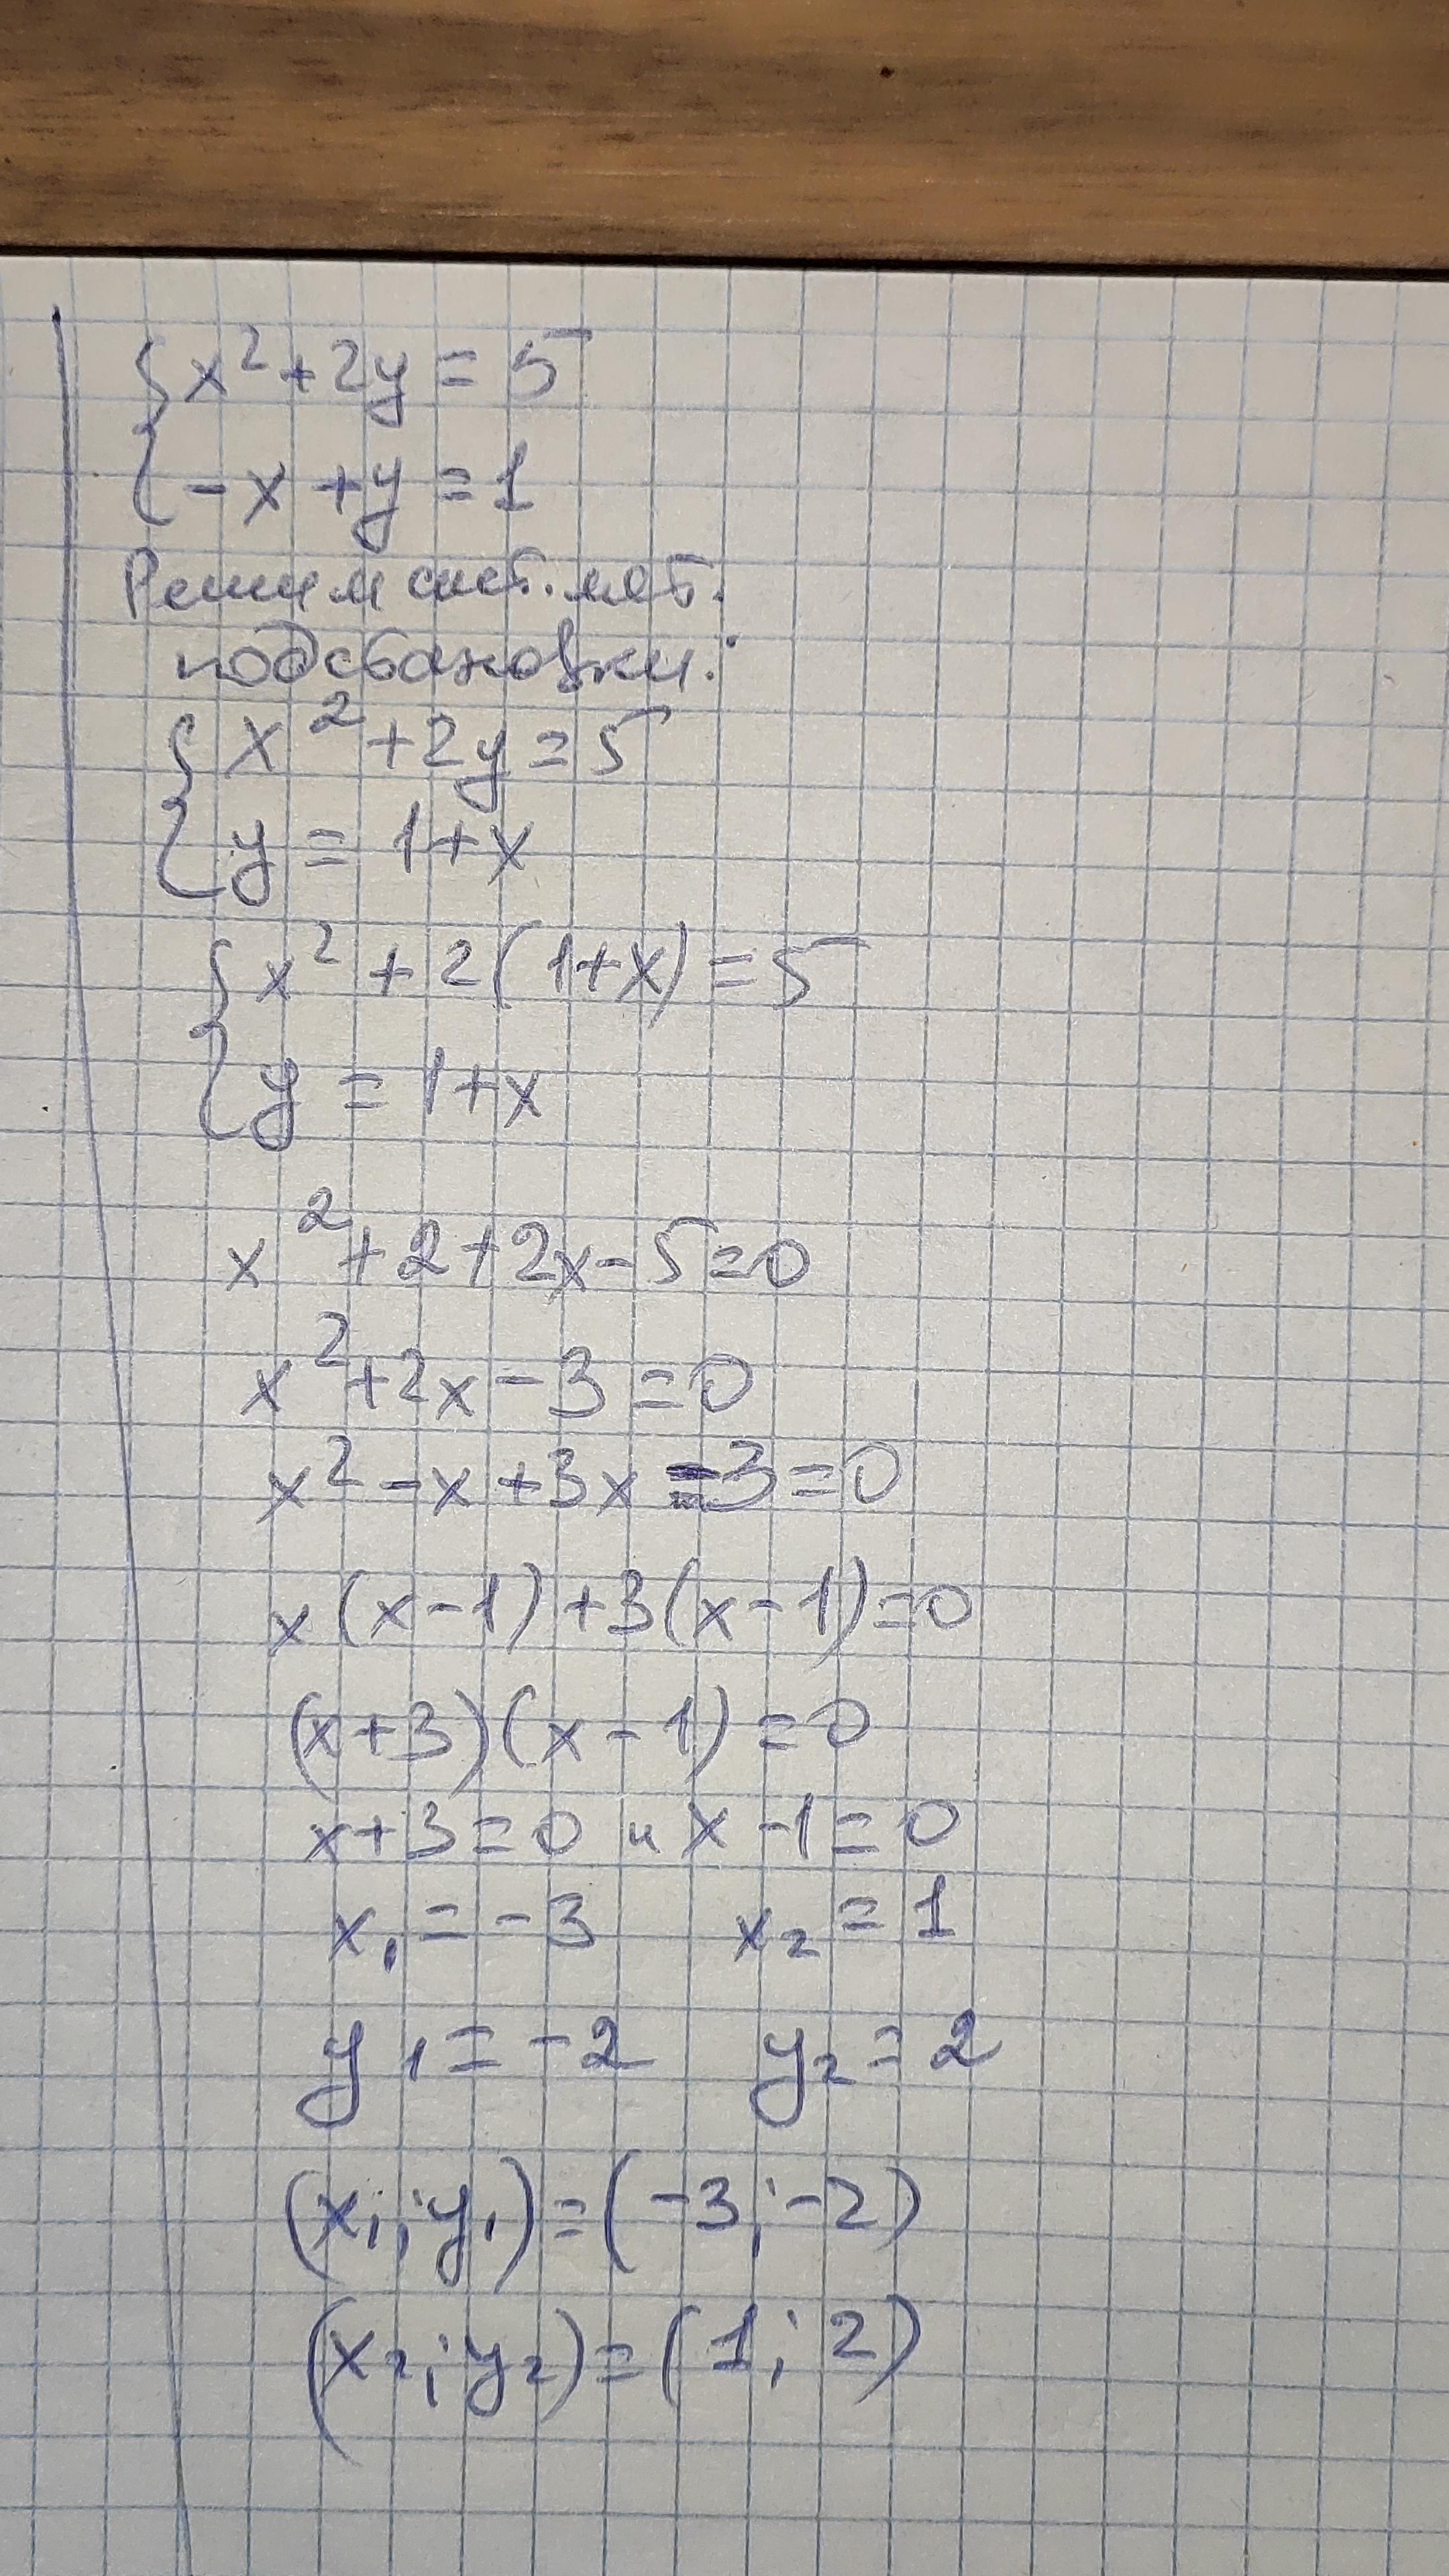 { x² + 2y = 5
{ -x + y = 1
Решим сист. мет.
подстановки:
{ x² + 2y = 5
{ y = 1 + x
{ x² + 2(1+x) = 5
{ y = 1 + x
x² + 2 + 2x - 5 = 0
x² + 2x - 3 = 0
x² - x + 3x - 3 = 0
x(x-1) + 3(x-1) = 0
(x+3)(x-1) = 0
x + 3 = 0 и x - 1 = 0
x₁ = -3 x₂ = 1
y₁ = -2 y₂ = 2
(x₁; y₁) = (-3; -2)
(x₂; y₂) = (1; 2)